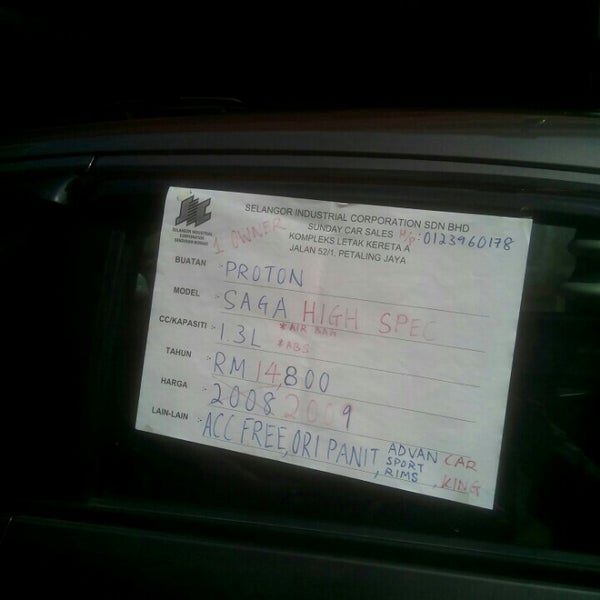 SELANGOR INDUSTRIAL CORPORATION SDN BHD
SUNDAY CAR SALES H/p: 0123960178
KOMPLEKS LETAK KERETA A
JALAN 52/1, PETALING JAYA
SIC
SELANGOR INDUSTRIAL
CORPORATION
SENDIRIAN BERHAD
1 OWNER
BUATAN :- PROTON
MODEL :- SAGA HIGH SPEC
CC/KAPASITI :- 1.3L *AIR BAG
*ABS
TAHUN :- RM 14,800
HARGA :- 2008 2009
LAIN-LAIN :- ACC FREE, ORI PANIT, ADVAN SPORT RIMS, CAR KING